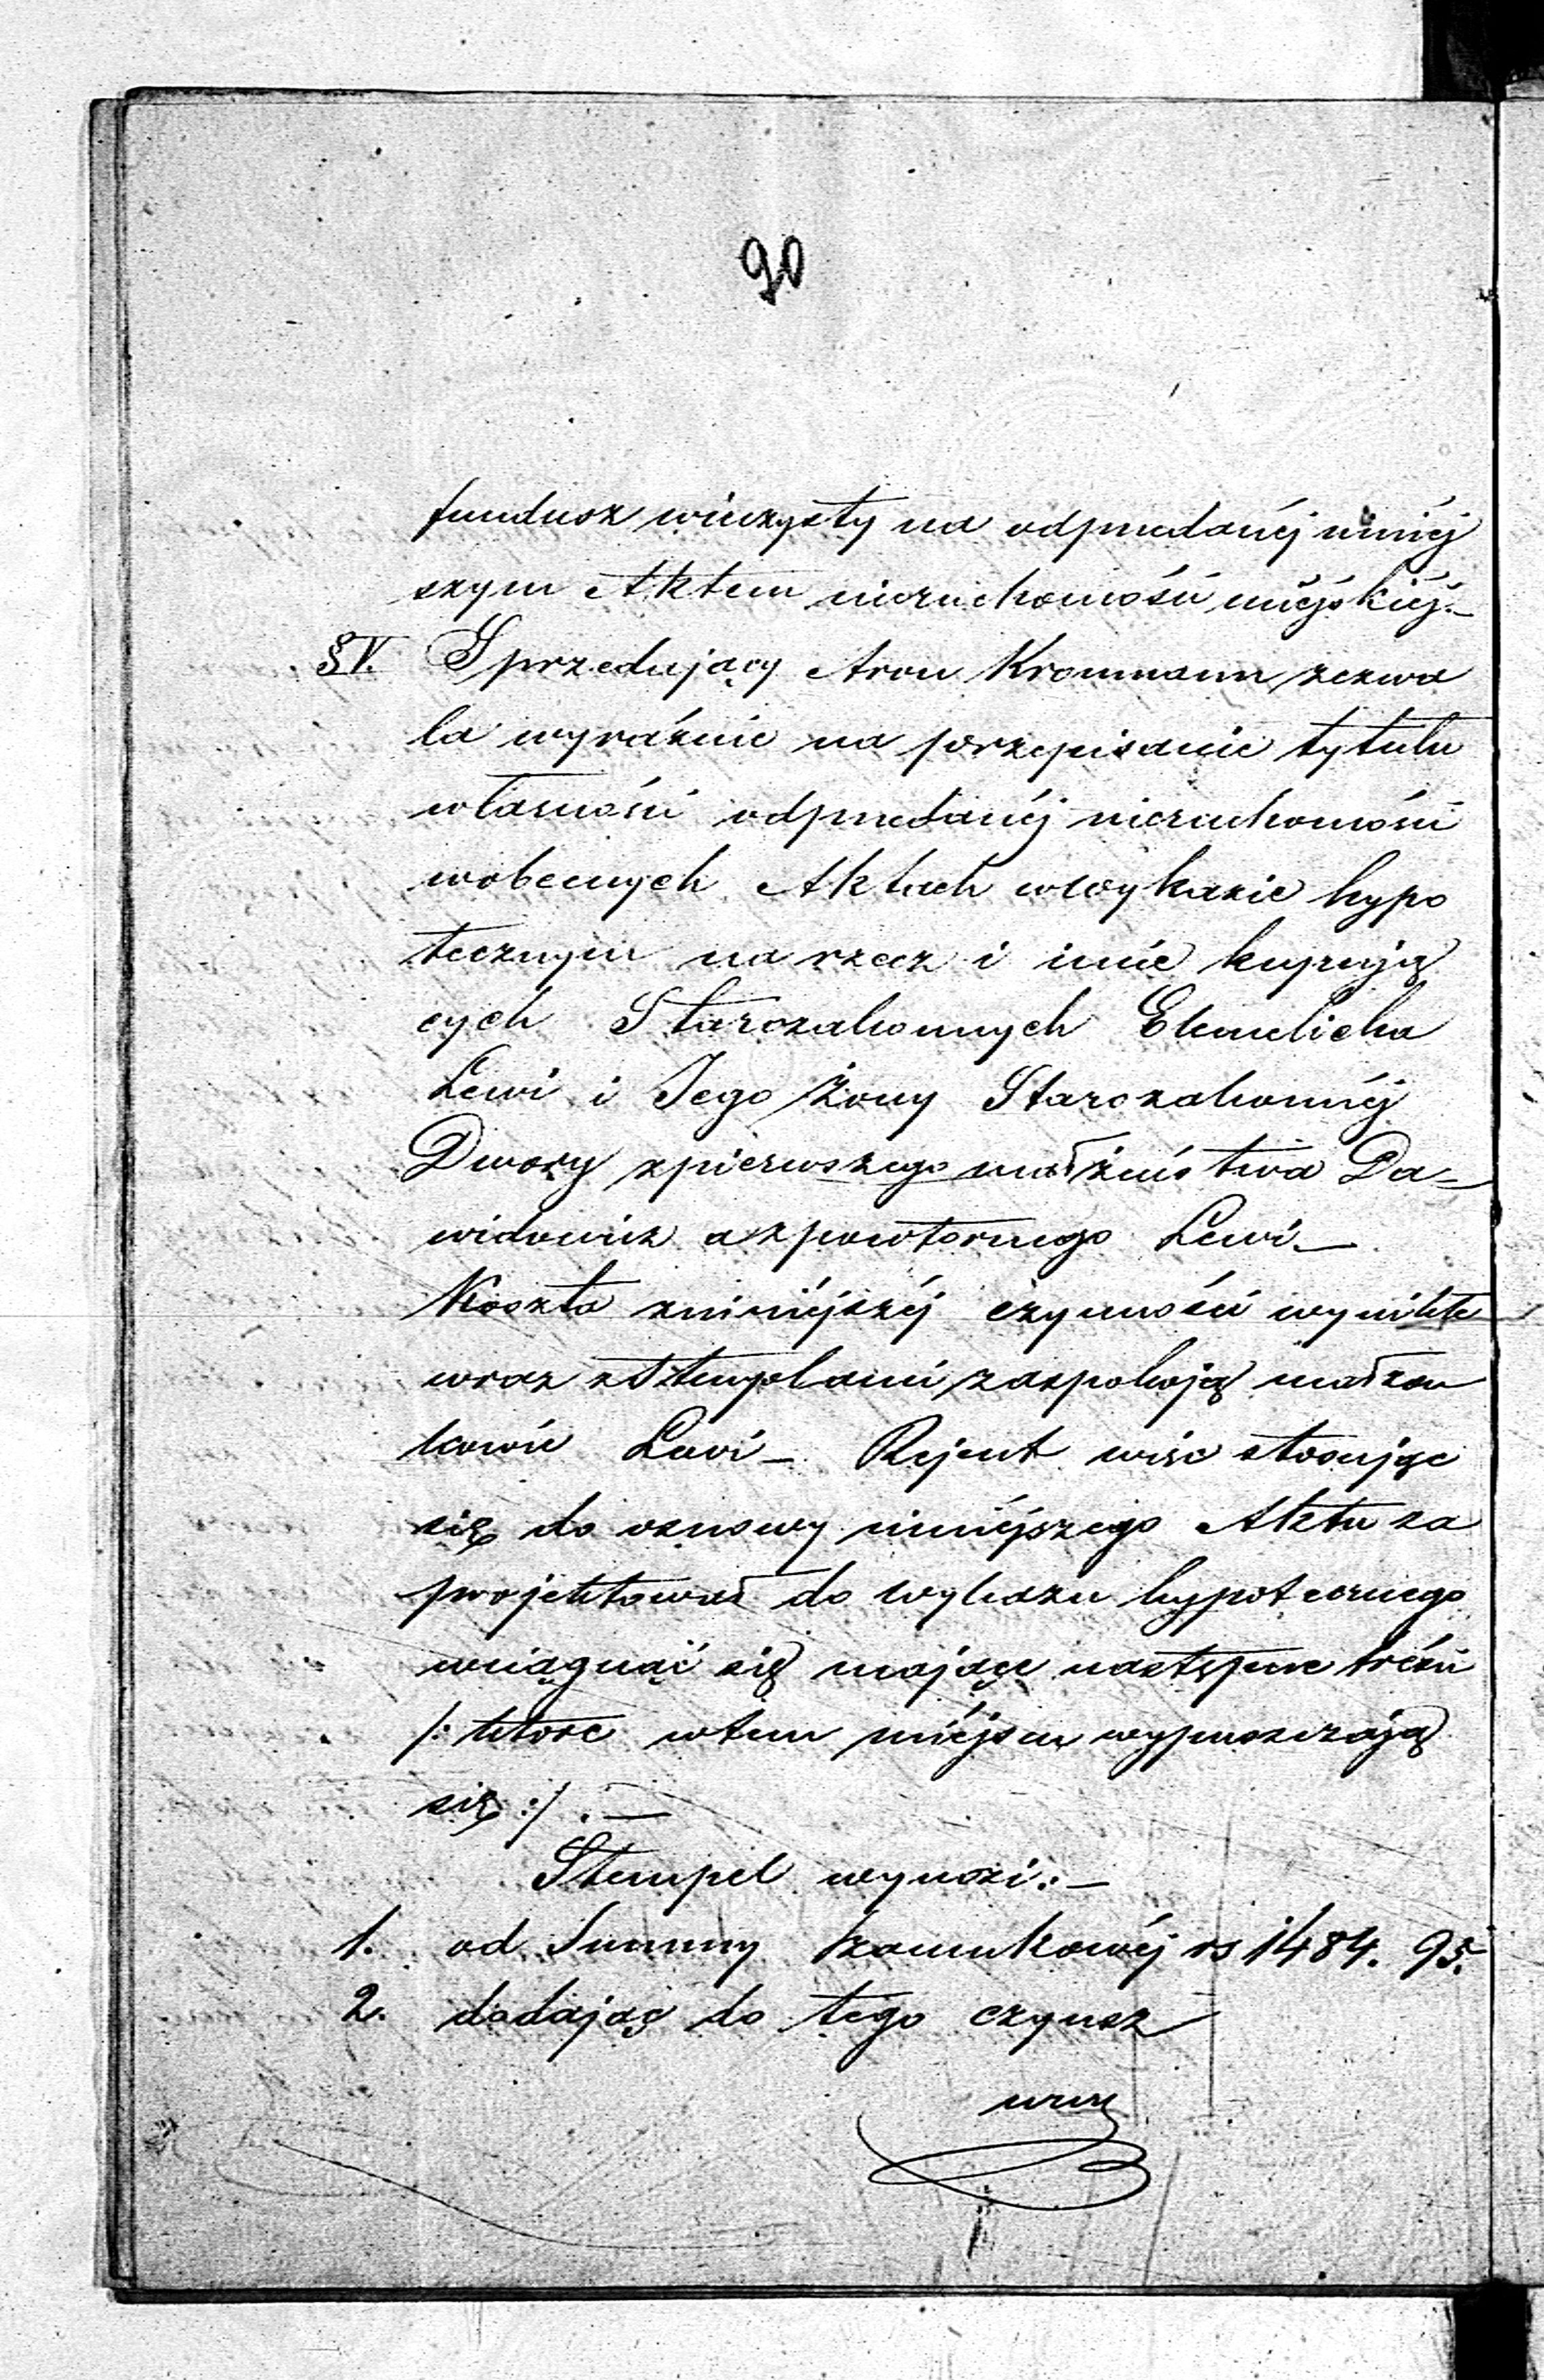 90
fundusz wieczysty na odprzedanéj niniéj
szym Aktem nieruchomości miéjskiéj.—
§ V. Sprzedający Aron Kronmann zezwa
la wyraźnie na przepisanie tytułu
własności odprzedanéj nieruchomości
wobecnych Aktach wwykazie hypo
tecznym na rzecz i imie kupują
cych Starozakonnych Elemelicha
Lewi i Jego Żony Starozakonnéj
Dwory zpierwszego małżeństwa Da=
widowicz a zpowtornego Lewi—
Koszta zniniéjszéj czynności wynikłe
wraz zStemplami zaspokoją małżon
kowie Lewi— Rejent więc stosując
się do osnowy niniéjszego Aktu za
projektował do wykazu hypotecznego
wciągnąć się mające następne treści
/: które wtem miéjscu wypuszczają
się :/.—
Stempel wynosi:—
1. od Summy szacunkowéj rs 1484. 95.
2. dodając do tego czynsz